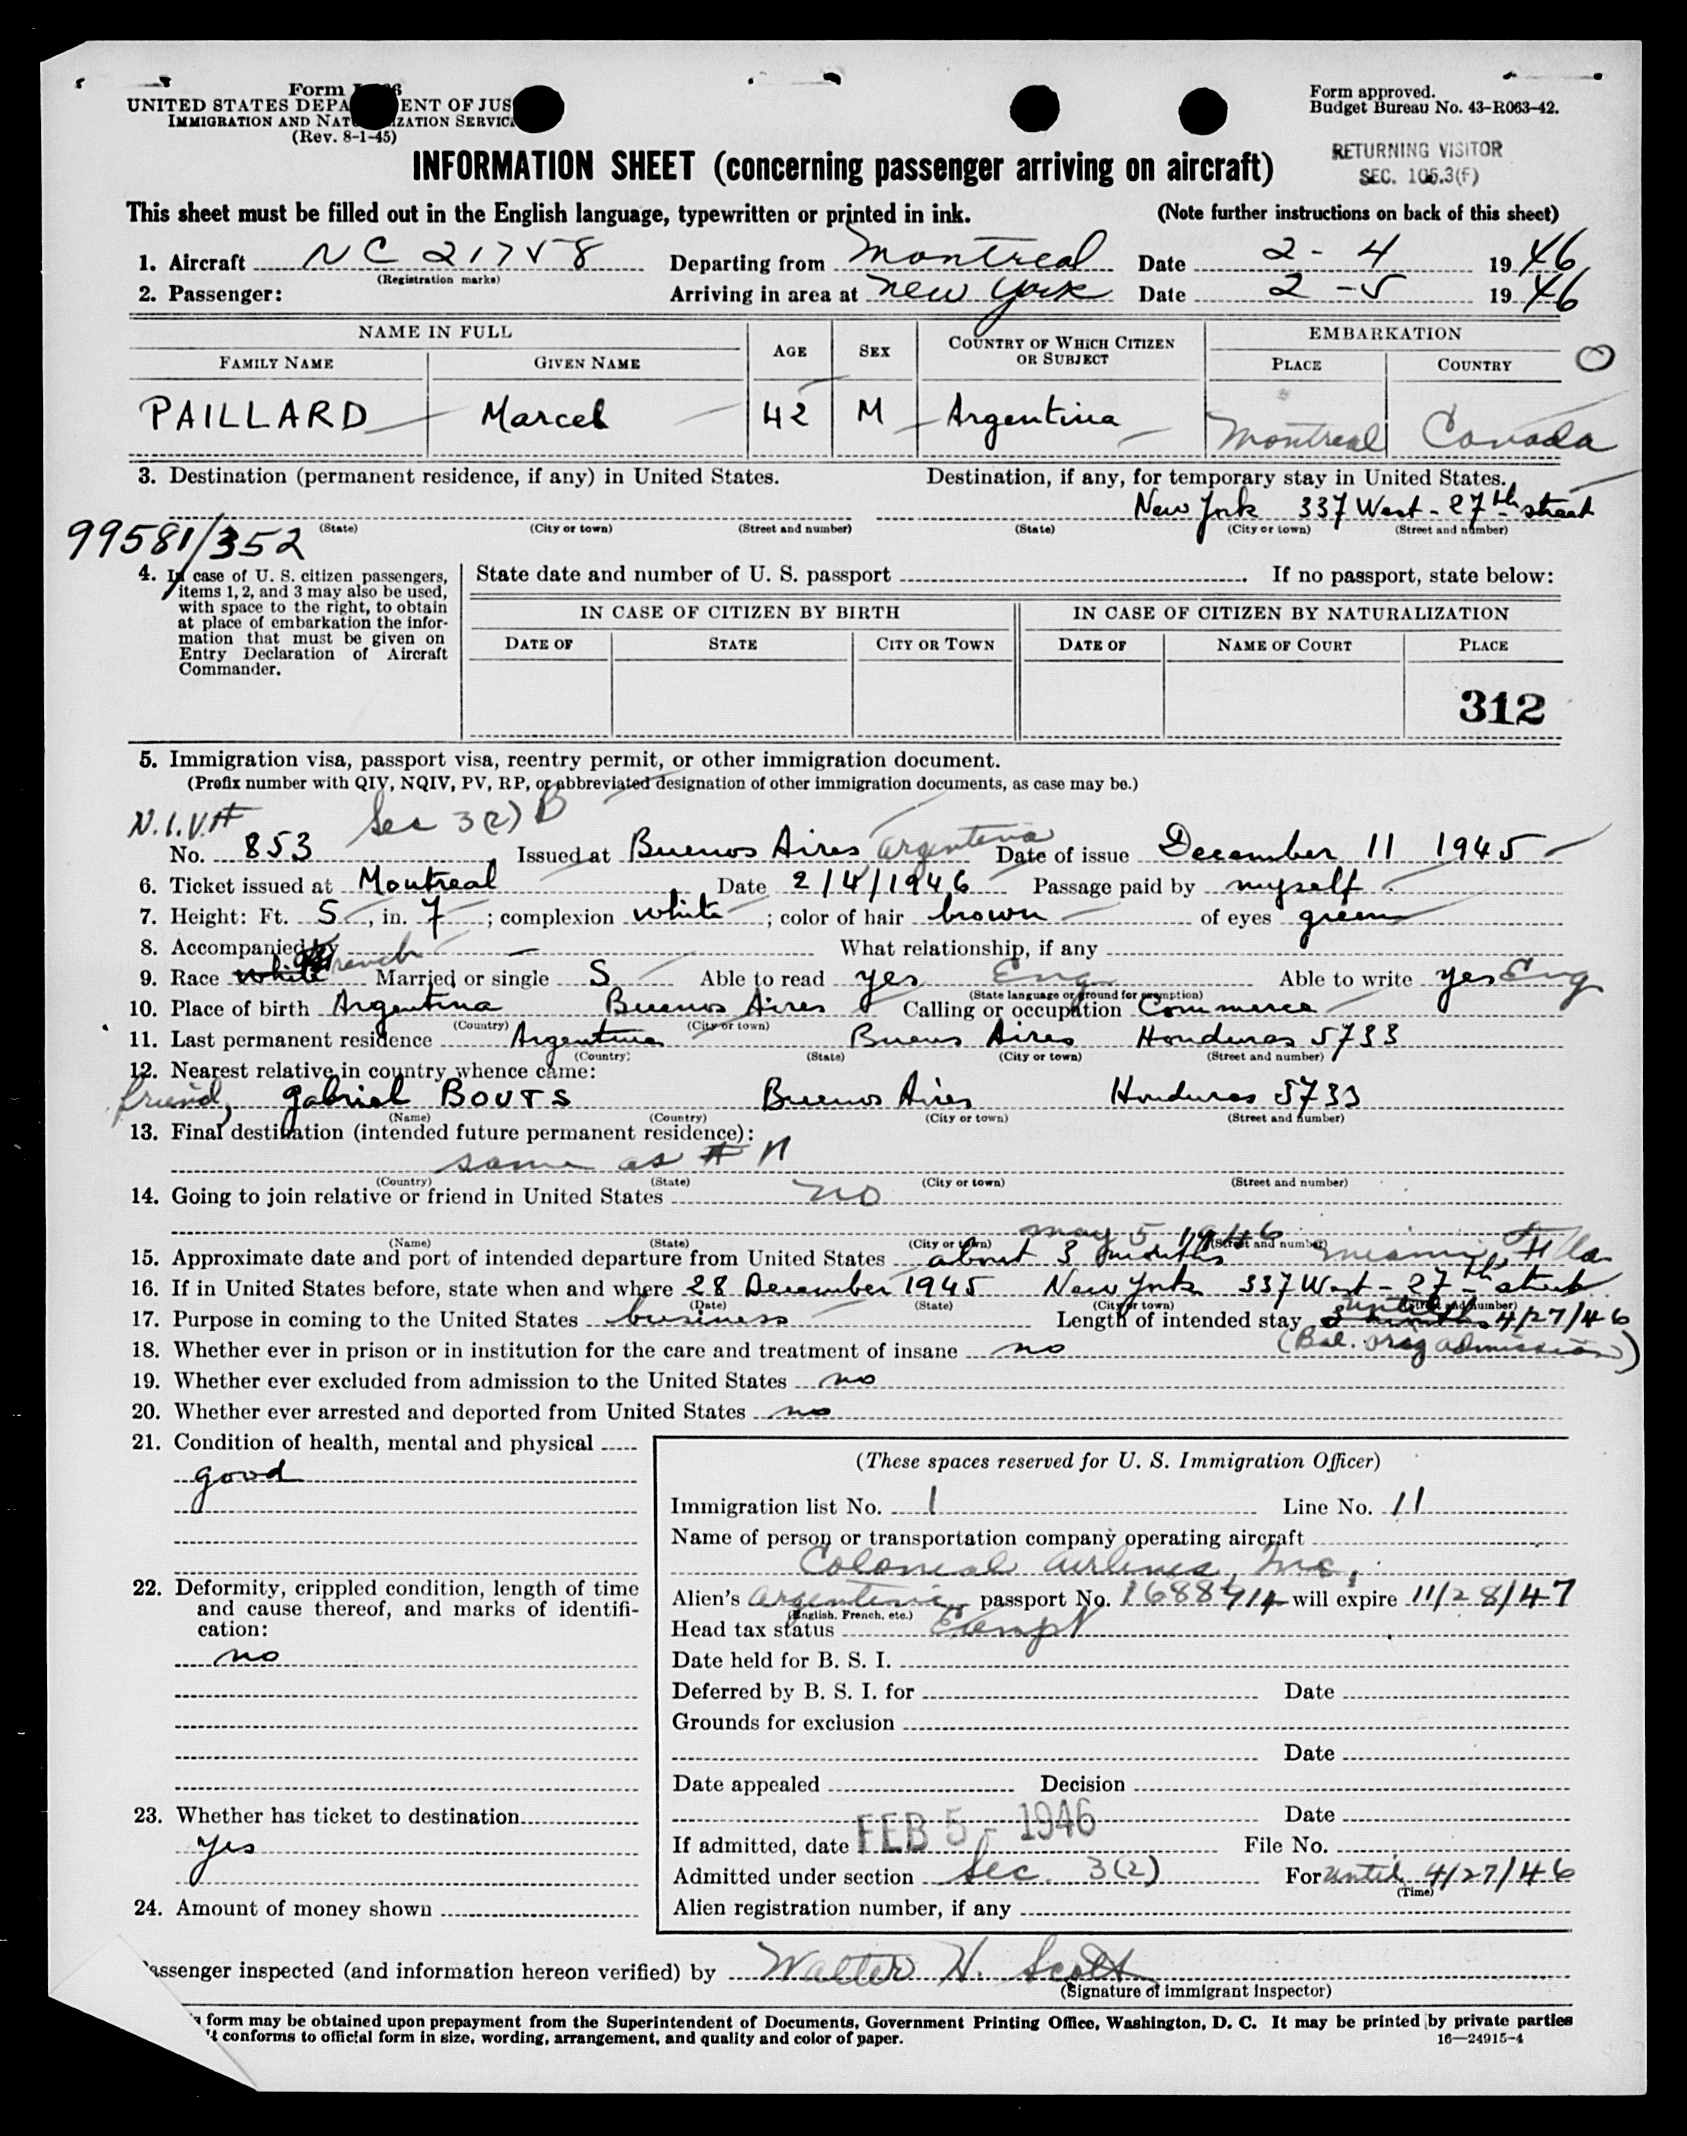 Form
UNITED STATES DEPA ENT OF JUS
IMMIGRATION AND NAT ZATION SERVIC
(Rev. 8-1-45)
Form approved.
Budget Bureau No. 43-R063-42.
RETURNING VISITOR
SEC. 105.3(f)
INFORMATION SHEET (concerning passenger arriving on aircraft)
This sheet must be filled out in the English language, typewritten or printed in ink. (Note further instructions on back of this sheet)
1. Aircraft NC 21758 Departing from Montreal Date 2-4 1946
(Registration marks)
2. Passenger: Arriving in area at New York Date 2-5 1946
NAME IN FULL AGE SEX COUNTRY OF WHICH CITIZEN OR SUBJECT EMBARKATION
FAMILY NAME GIVEN NAME PLACE COUNTRY
PAILLARD Marcel 42 M Argentina Montreal Canada
3. Destination (permanent residence, if any) in United States. Destination, if any, for temporary stay in United States.
New York 337 West - 27th street
(State) (City or town) (Street and number) (State) (City or town) (Street and number)
99581/352
4. In case of U. S. citizen passengers, items 1, 2, and 3 may also be used, with space to the right, to obtain at place of embarkation the information that must be given on Entry Declaration of Aircraft Commander.
State date and number of U. S. passport . If no passport, state below:
IN CASE OF CITIZEN BY BIRTH IN CASE OF CITIZEN BY NATURALIZATION
DATE OF STATE CITY OR TOWN DATE OF NAME OF COURT PLACE
312
5. Immigration visa, passport visa, reentry permit, or other immigration document.
(Prefix number with QIV, NQIV, PV, RP, or abbreviated designation of other immigration documents, as case may be.)
N.I.V.# Sec 3(2) B
No. 853 Issued at Buenos Aires Argentina Date of issue December 11 1945
6. Ticket issued at Montreal Date 2/4/1946 Passage paid by myself
7. Height: Ft. 5, in. 7; complexion white; color of hair brown of eyes green
8. Accompanied by — What relationship, if any
9. Race White French Married or single S Able to read yes Eng Able to write yes Eng
(State language or ground for exemption)
10. Place of birth Argentina Buenos Aires Calling or occupation Commerce
(Country) (City or town)
11. Last permanent residence Argentina Buenos Aires Honduras 5733
(Country) (State) (City or town) (Street and number)
12. Nearest relative in country whence came:
friend, gabriel BOUTS Buenos Aires Honduras 5733
(Name) (Country) (City or town) (Street and number)
13. Final destination (intended future permanent residence):
same as # 11
(Country) (State) (City or town) (Street and number)
14. Going to join relative or friend in United States no
May 5 1946
(Name) (State) (City or town) (Street and number)
15. Approximate date and port of intended departure from United States about 3 months Miami, Fla
16. If in United States before, state when and where 28 December 1945 New York 337 West - 27th street
(Date) (State) (City or town) (Street and number)
17. Purpose in coming to the United States business Length of intended stay until 4/27/46
(Bal. orig admission)
18. Whether ever in prison or in institution for the care and treatment of insane no
19. Whether ever excluded from admission to the United States no
20. Whether ever arrested and deported from United States no
21. Condition of health, mental and physical
good
22. Deformity, crippled condition, length of time and cause thereof, and marks of identification:
no
23. Whether has ticket to destination
yes
24. Amount of money shown
(These spaces reserved for U. S. Immigration Officer)
Immigration list No. 1 Line No. 11
Name of person or transportation company operating aircraft
Colonial Airlines, Inc.
Alien's Argentine passport No. will expire 11/28/47
(English, French, etc.)
Head tax status Exempt
Date held for B. S. I.
Deferred by B. S. I. for Date
Grounds for exclusion
Date
Date appealed Decision
Date
If admitted, date FEB 5 - 1946 File No.
Admitted under section Sec. 3(2) For until 4/27/46
(Time)
Alien registration number, if any
Passenger inspected (and information hereon verified) by Walter H. Scott
(Signature of immigrant inspector)
form may be obtained upon prepayment from the Superintendent of Documents, Government Printing Office, Washington, D. C. It may be printed by private parties
it conforms to official form in size, wording, arrangement, and quality and color of paper.
16—24915-4